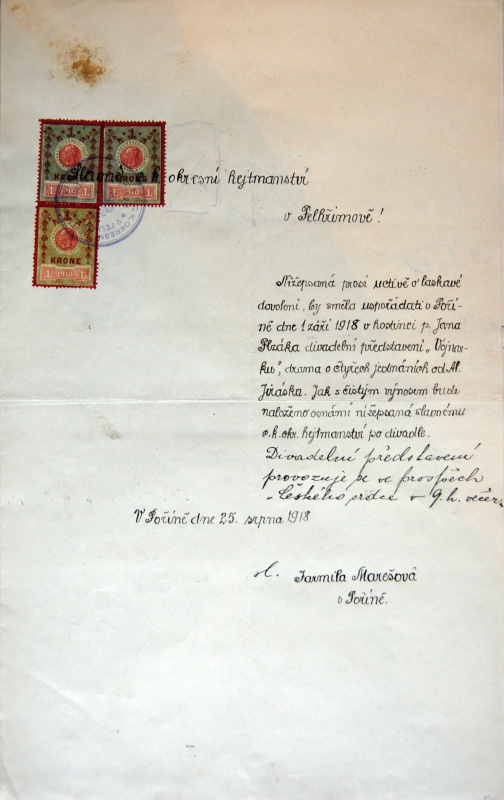 1
1
KRONE
KRONE
1 1910 1
1 1910 1
Slavné c. k. okresní hejtmanství
v Pelhřimově!
1
KRONE
1 1910 1
Nížepsaná prosí uctivě o laskavé
dovolení, by směla uspořádati v Poří-
ně dne 1 září 1918 v hostinci p. Jana
Plzáka divadelní představení „Vojnar-
ku", drama o čtyřech jednáních od Al.
Jiráska. Jak s čistým výnosem bude
naloženo oznámí nížepsaná slavnému
c. k. okr. hejtmanství po divadle.
Divadelní představení
provozuje se ve prospěch
„Českého srdce v 9. h. večer.
V Pořině dne 25. srpna 1918
Jarmila Marešová
v Pořině.